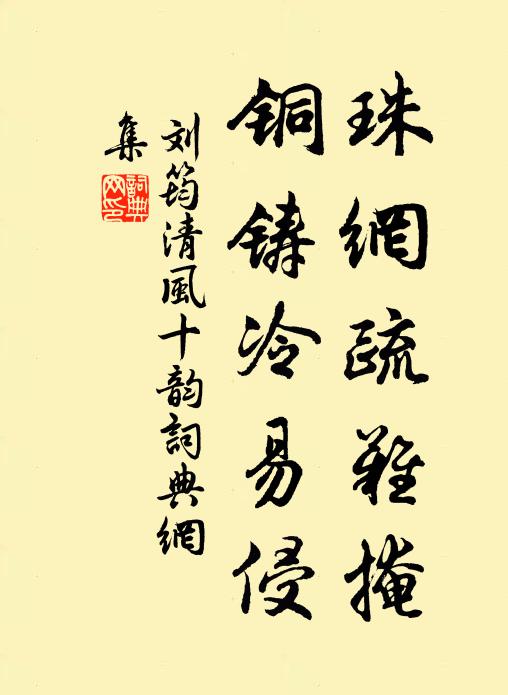 珠網疏難掩
銅鑄冷易侵
刘筠清風十韵詞典網
集
詞典網印